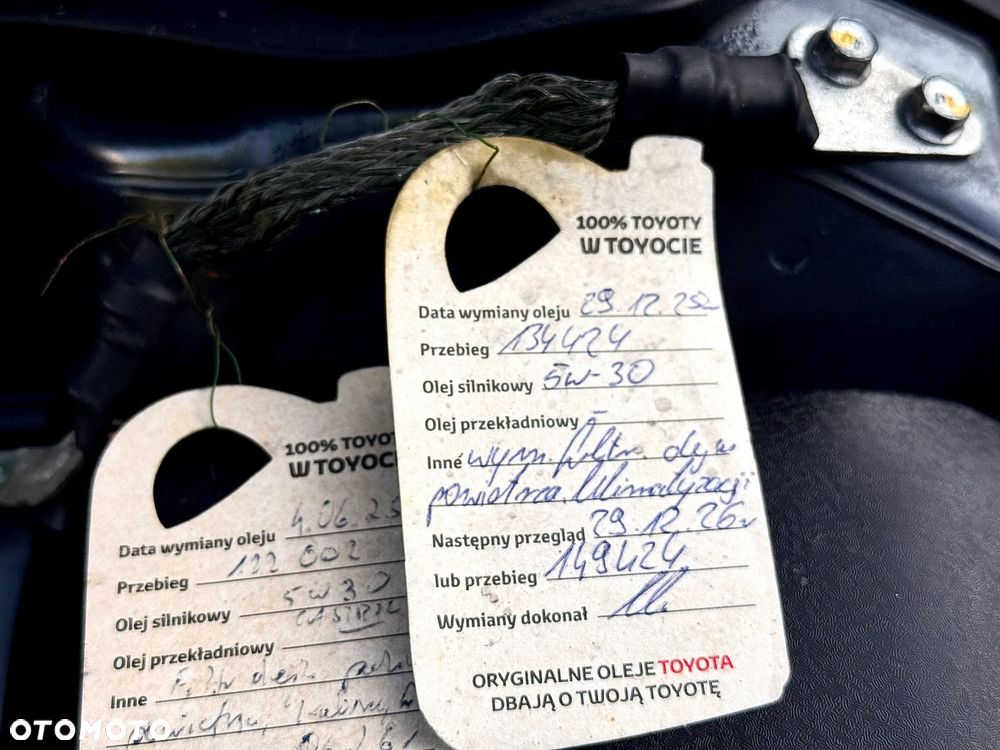 100% TOYOTY
W TOYOCIE
Data wymiany oleju 29.12.25
Przebieg 134424
Olej silnikowy 5W-30
Olej przekładniowy –
Inne wym. filtr.
powietrza, klimatyzacji
Następny przegląd 29.12.26
lub przebieg 149424
Wymiany dokonał
ORYGINALNE OLEJE TOYOTA
DBAJĄ O TWOJĄ TOYOTĘ
100% TOYOT
W TOYOCI
Data wymiany oleju 4.06.25
Przebieg 122 002
Olej silnikowy 5W30
Olej przekładniowy
Inne
OTOMOTO